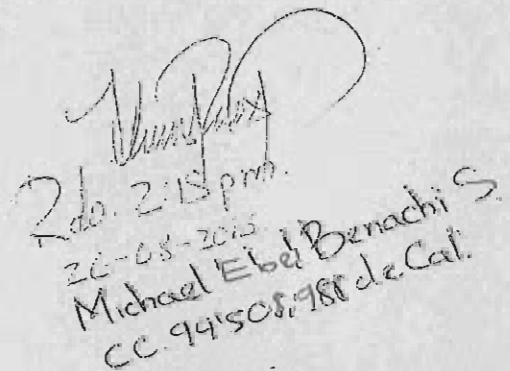 Rdo. 2:15 pm.
26-08-2015
Michael Ebel Benachi S.
CC. 94'508,988 de Cal.